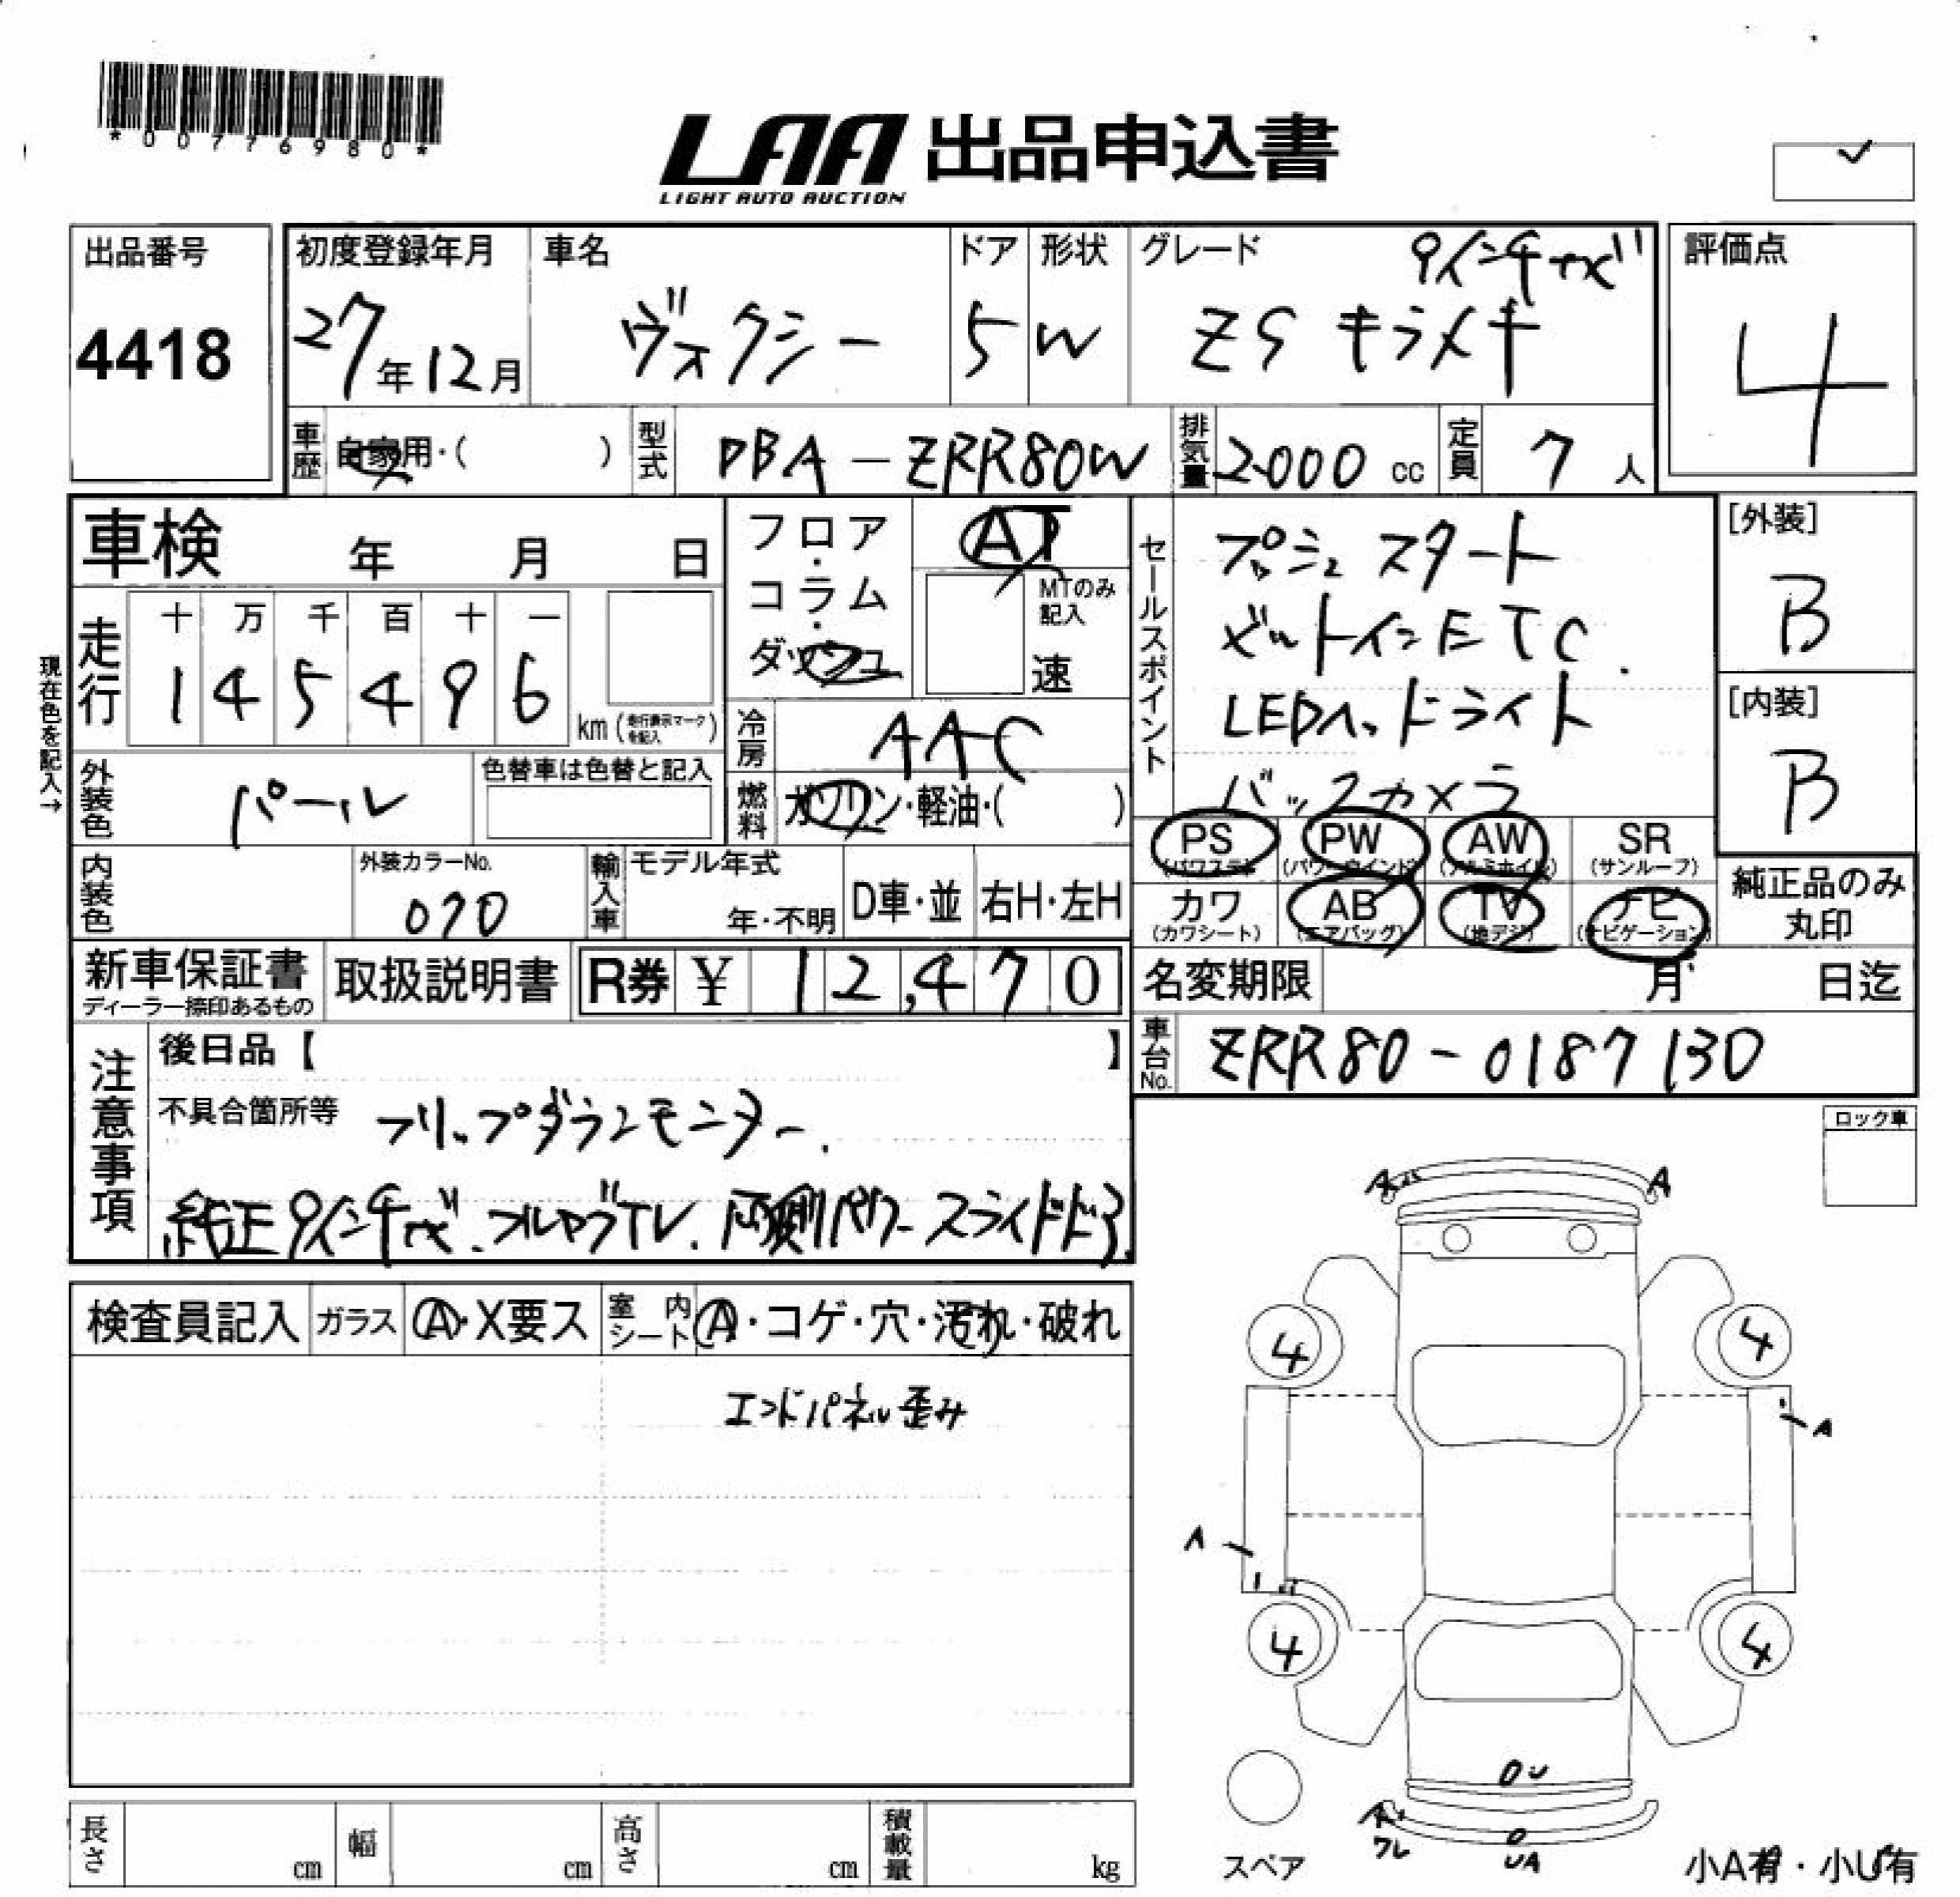 *00776980*
LAA 出品申込書
LIGHT AUTO AUCTION
出品番号
4418
初度登録年月
27年12月
車名
ヴォクシー
ドア
5
形状
W
グレード
9インチナビ
ZS キラメキ
評価点
4
車歴
自家用・( )
型式
DBA-ZRR80W
排気量
2000 cc
定員
7 人
車検 年 月 日
フロア・コラム・ダッシュ
AT
MTのみ記入
速
現在色を記入→
走行
十 万 千 百 十 一
1 4 5 4 9 6
km (走行表示マークを記入)
冷房
AAC
外装色
パール
色替車は色替と記入
燃料
ガソリン・軽油・( )
セールスポイント
プッシュスタート
ビルトインETC.
LEDヘッドライト
バックカメラ
[外装]
B
[内装]
B
PS (パワステ)
PW (パワーウインド)
AW (アルミホイル)
SR (サンルーフ)
カワ (カワシート)
AB (エアバッグ)
TV (地デジ)
ナビ (ナビゲーション)
純正品のみ丸印
内装色
外装カラーNo.
070
輸入車
モデル年式
年・不明
D車・並
右H・左H
新車保証書
ディーラー捺印あるもの
取扱説明書
R券 ¥ 12,470
名変期限 月 日迄
車台No.
ZRR80-0187130
注意事項
後日品【 】
不具合箇所等
フリップダウンモニター.
純正9インチナビ.フルセグTV.両側パワースライドドア.
ロック車
検査員記入
ガラス
A・X要ス
室内シート
A・コゲ・穴・汚れ・破れ
エンドパネル歪み
A A
4 4
A
A
4 4
A
ワレ
UA
スペア
小A有・小U有
長さ cm
幅 cm
高さ cm
積載量 kg